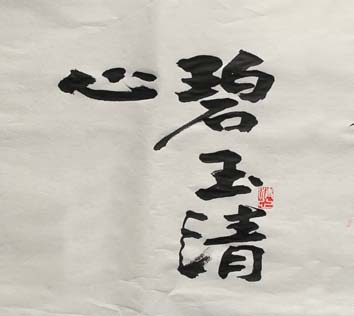 碧玉清
心